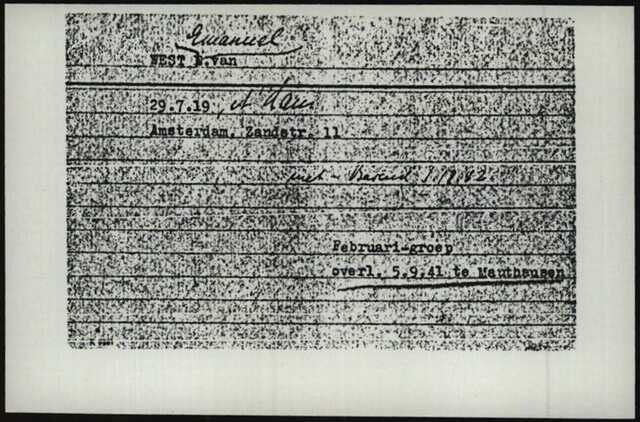 Emanuel
WEST E.van
29.7.19, A'dam
Amsterdam, Zandstr. 11
Februari-groep
overl. 5.9.41 te Mauthausen